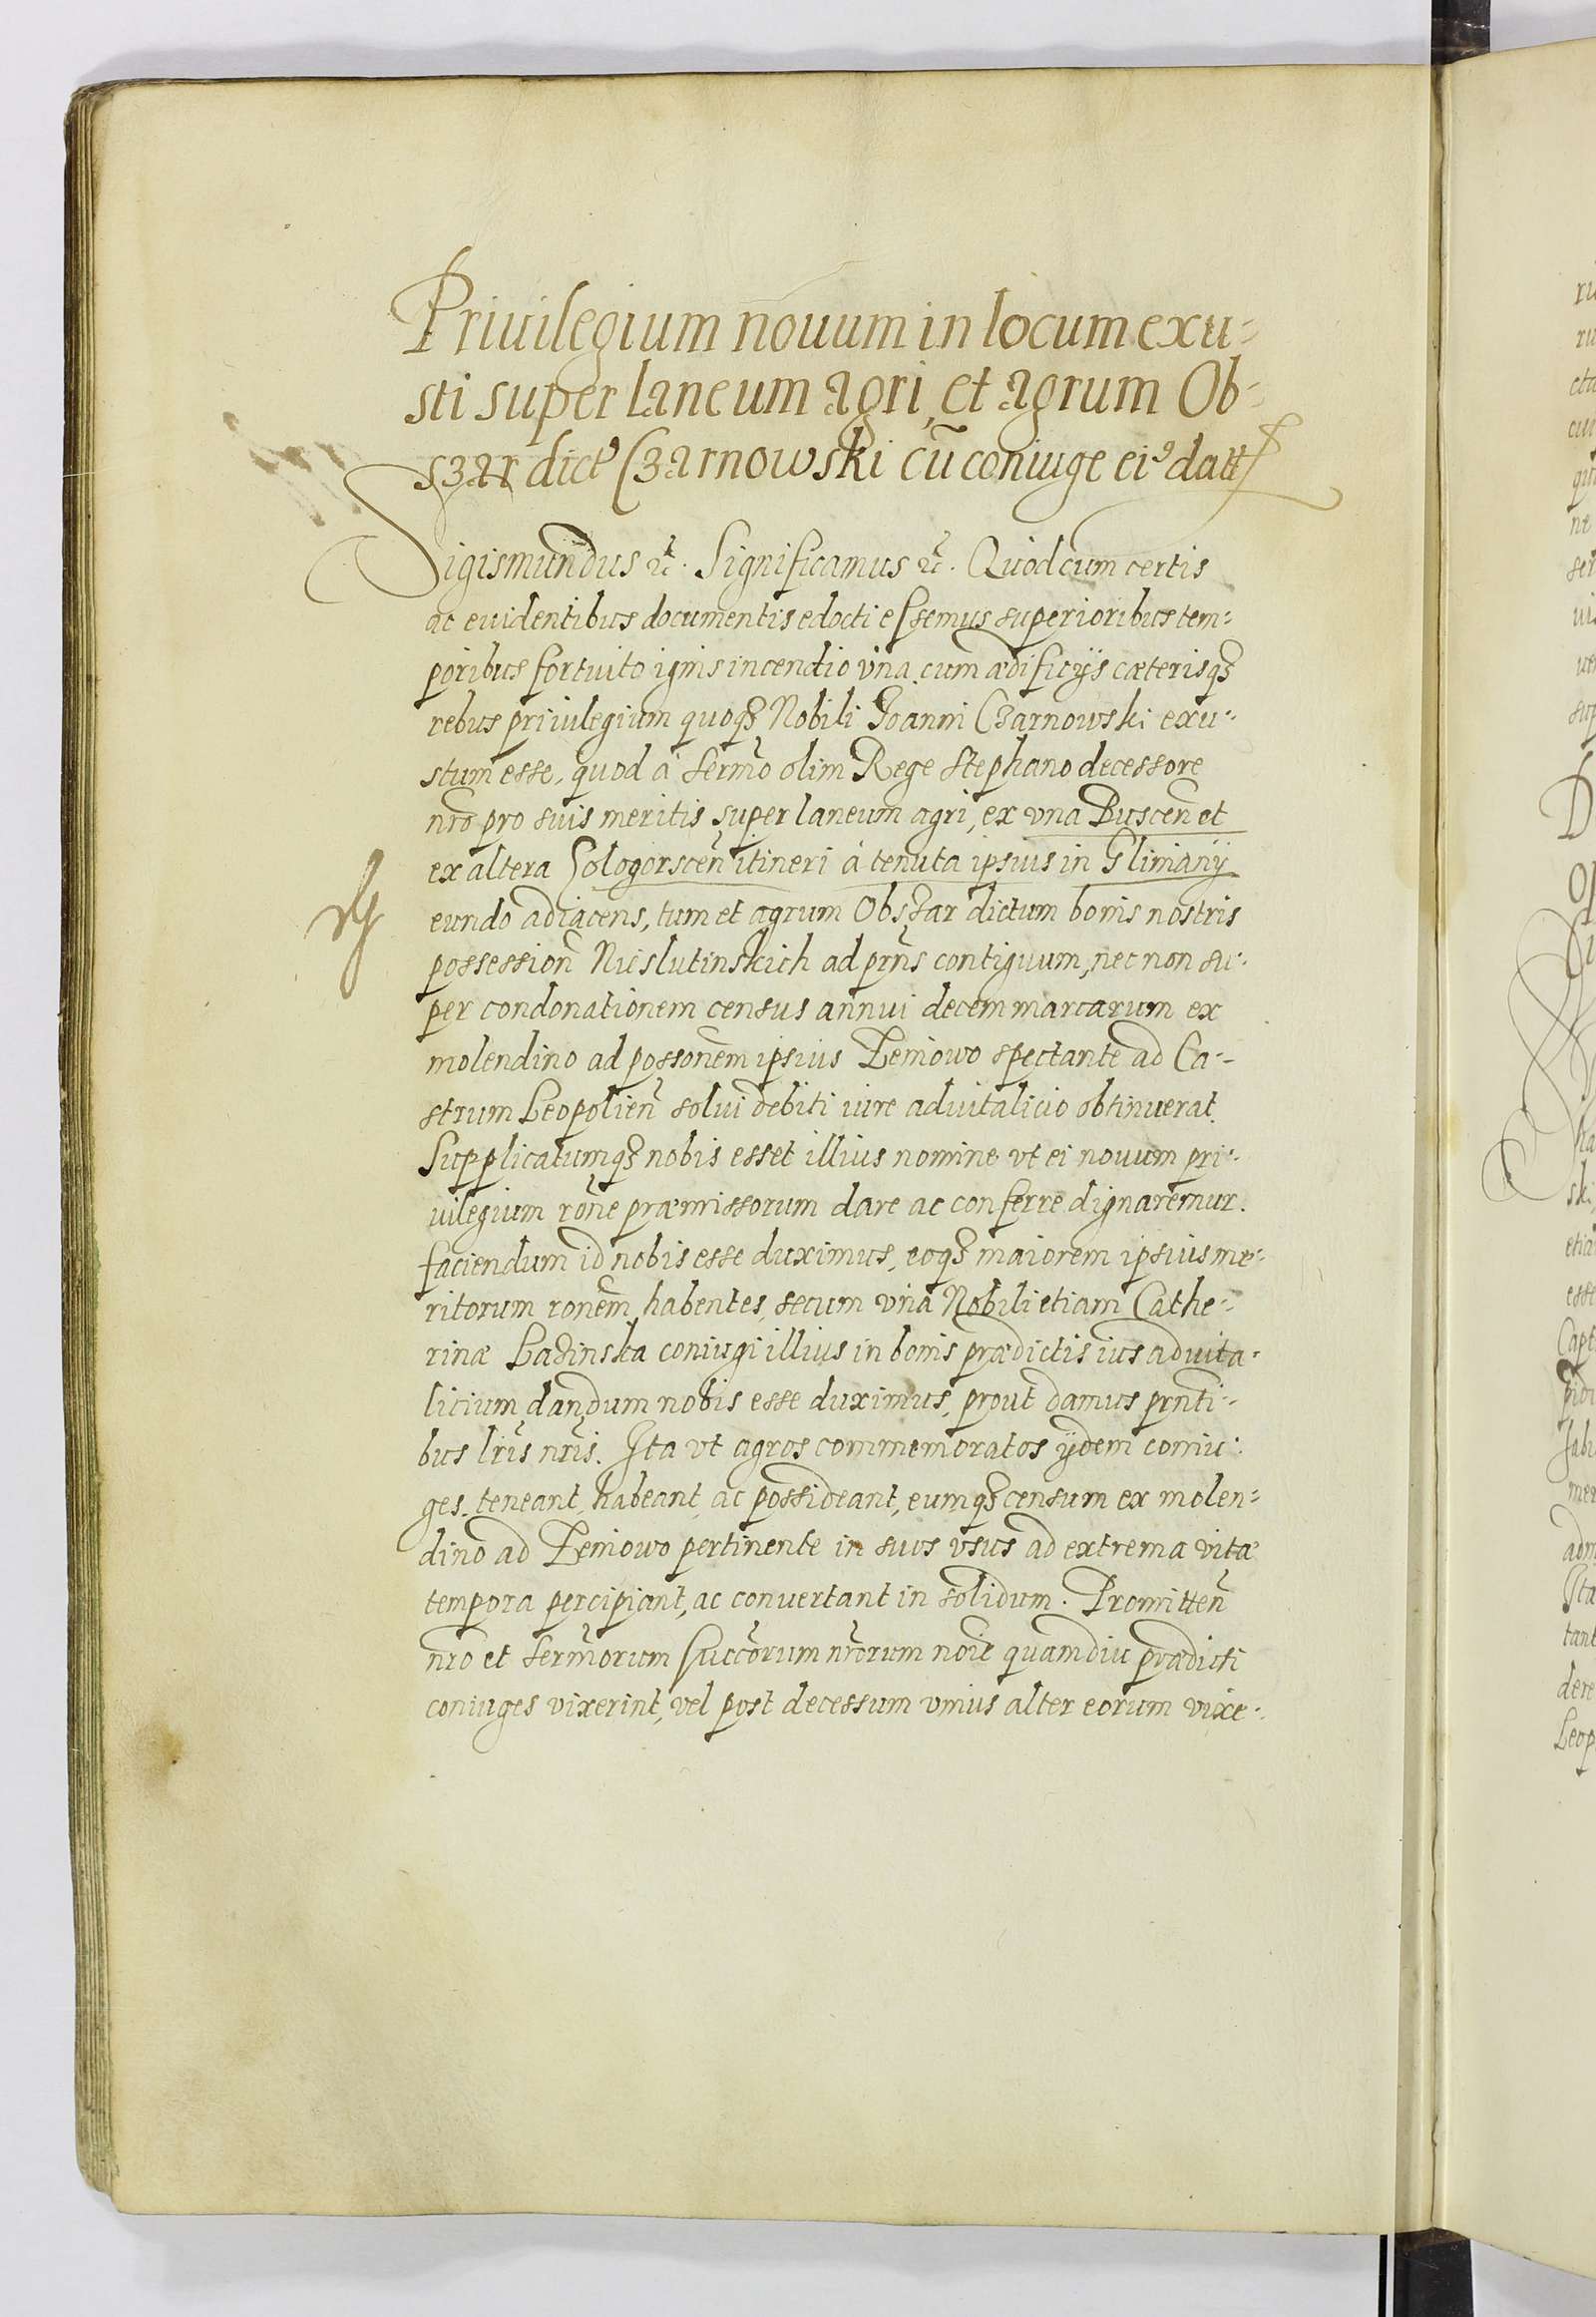 Priuilegium nouum in locum exu-
sti super laneum agri, et agrum Ob-
szar dict⁹ Czarnowski cũ coniuge ei⁹ datt
Sigismundus ꝛc̃. Significamus ꝛc̃. Quod cum certis
ac euidentibus documentis edocti essemus superioribus tem-
poribus fortuito ignis incendio vna cum ædificijs cæterisqꝫ
rebus priuilegium quoqꝫ Nobili Joanni Czarnowski exu-
stum esse, quod à Sermõ olim Rege Stephano decessore
nrõ pro suis meritis super laneum agri, ex vna Buscen̄ et
ex altera Sologorscen̄ itineri à tenuta ipsius in Glimany
eundo adiacens, tum et agrum Obszar dictum bonis nostris
possession̄ Nieslutinskich ad prn̄s contiguum, nec non su-
per condonationem census annui decem marcarum ex
molendino ad possonēm ipsius Zeniowo spectante ad Ca-
strum Leopolien̄ solui debiti iure aduitalicio obtinuerat.
Supplicatumqꝫ nobis esset illius nomine vt ei nouum pri-
uilegium rōne præmissorum dare ac conferre dignaremur.
faciendum id nobis esse duximus, eoqꝫ maiorem ipsius me-
ritorum ronēm habentes, secum vnà Nobili etiam Cathe-
rinæ coniugi illius in bonis prædictis ius aduita-
licium dandum nobis esse duximus, prout damus prn̄ti-
bus lrīs nrīs. Ita vt agros commemoratos ijdem coniu-
ges, teneant, habeant, ac possideant, eumqꝫ censum ex molen-
dino ad Zeniowo pertinente in suos vsus ad extrema vitæ
tempora percipiant, ac conuertant in solidum. Promitten̄
nrō et Sermōrum Succōrum nrōrum noīe quamdiu prædicti
coniuges vixerint, vel post decessum vnius alter eorum vixe-